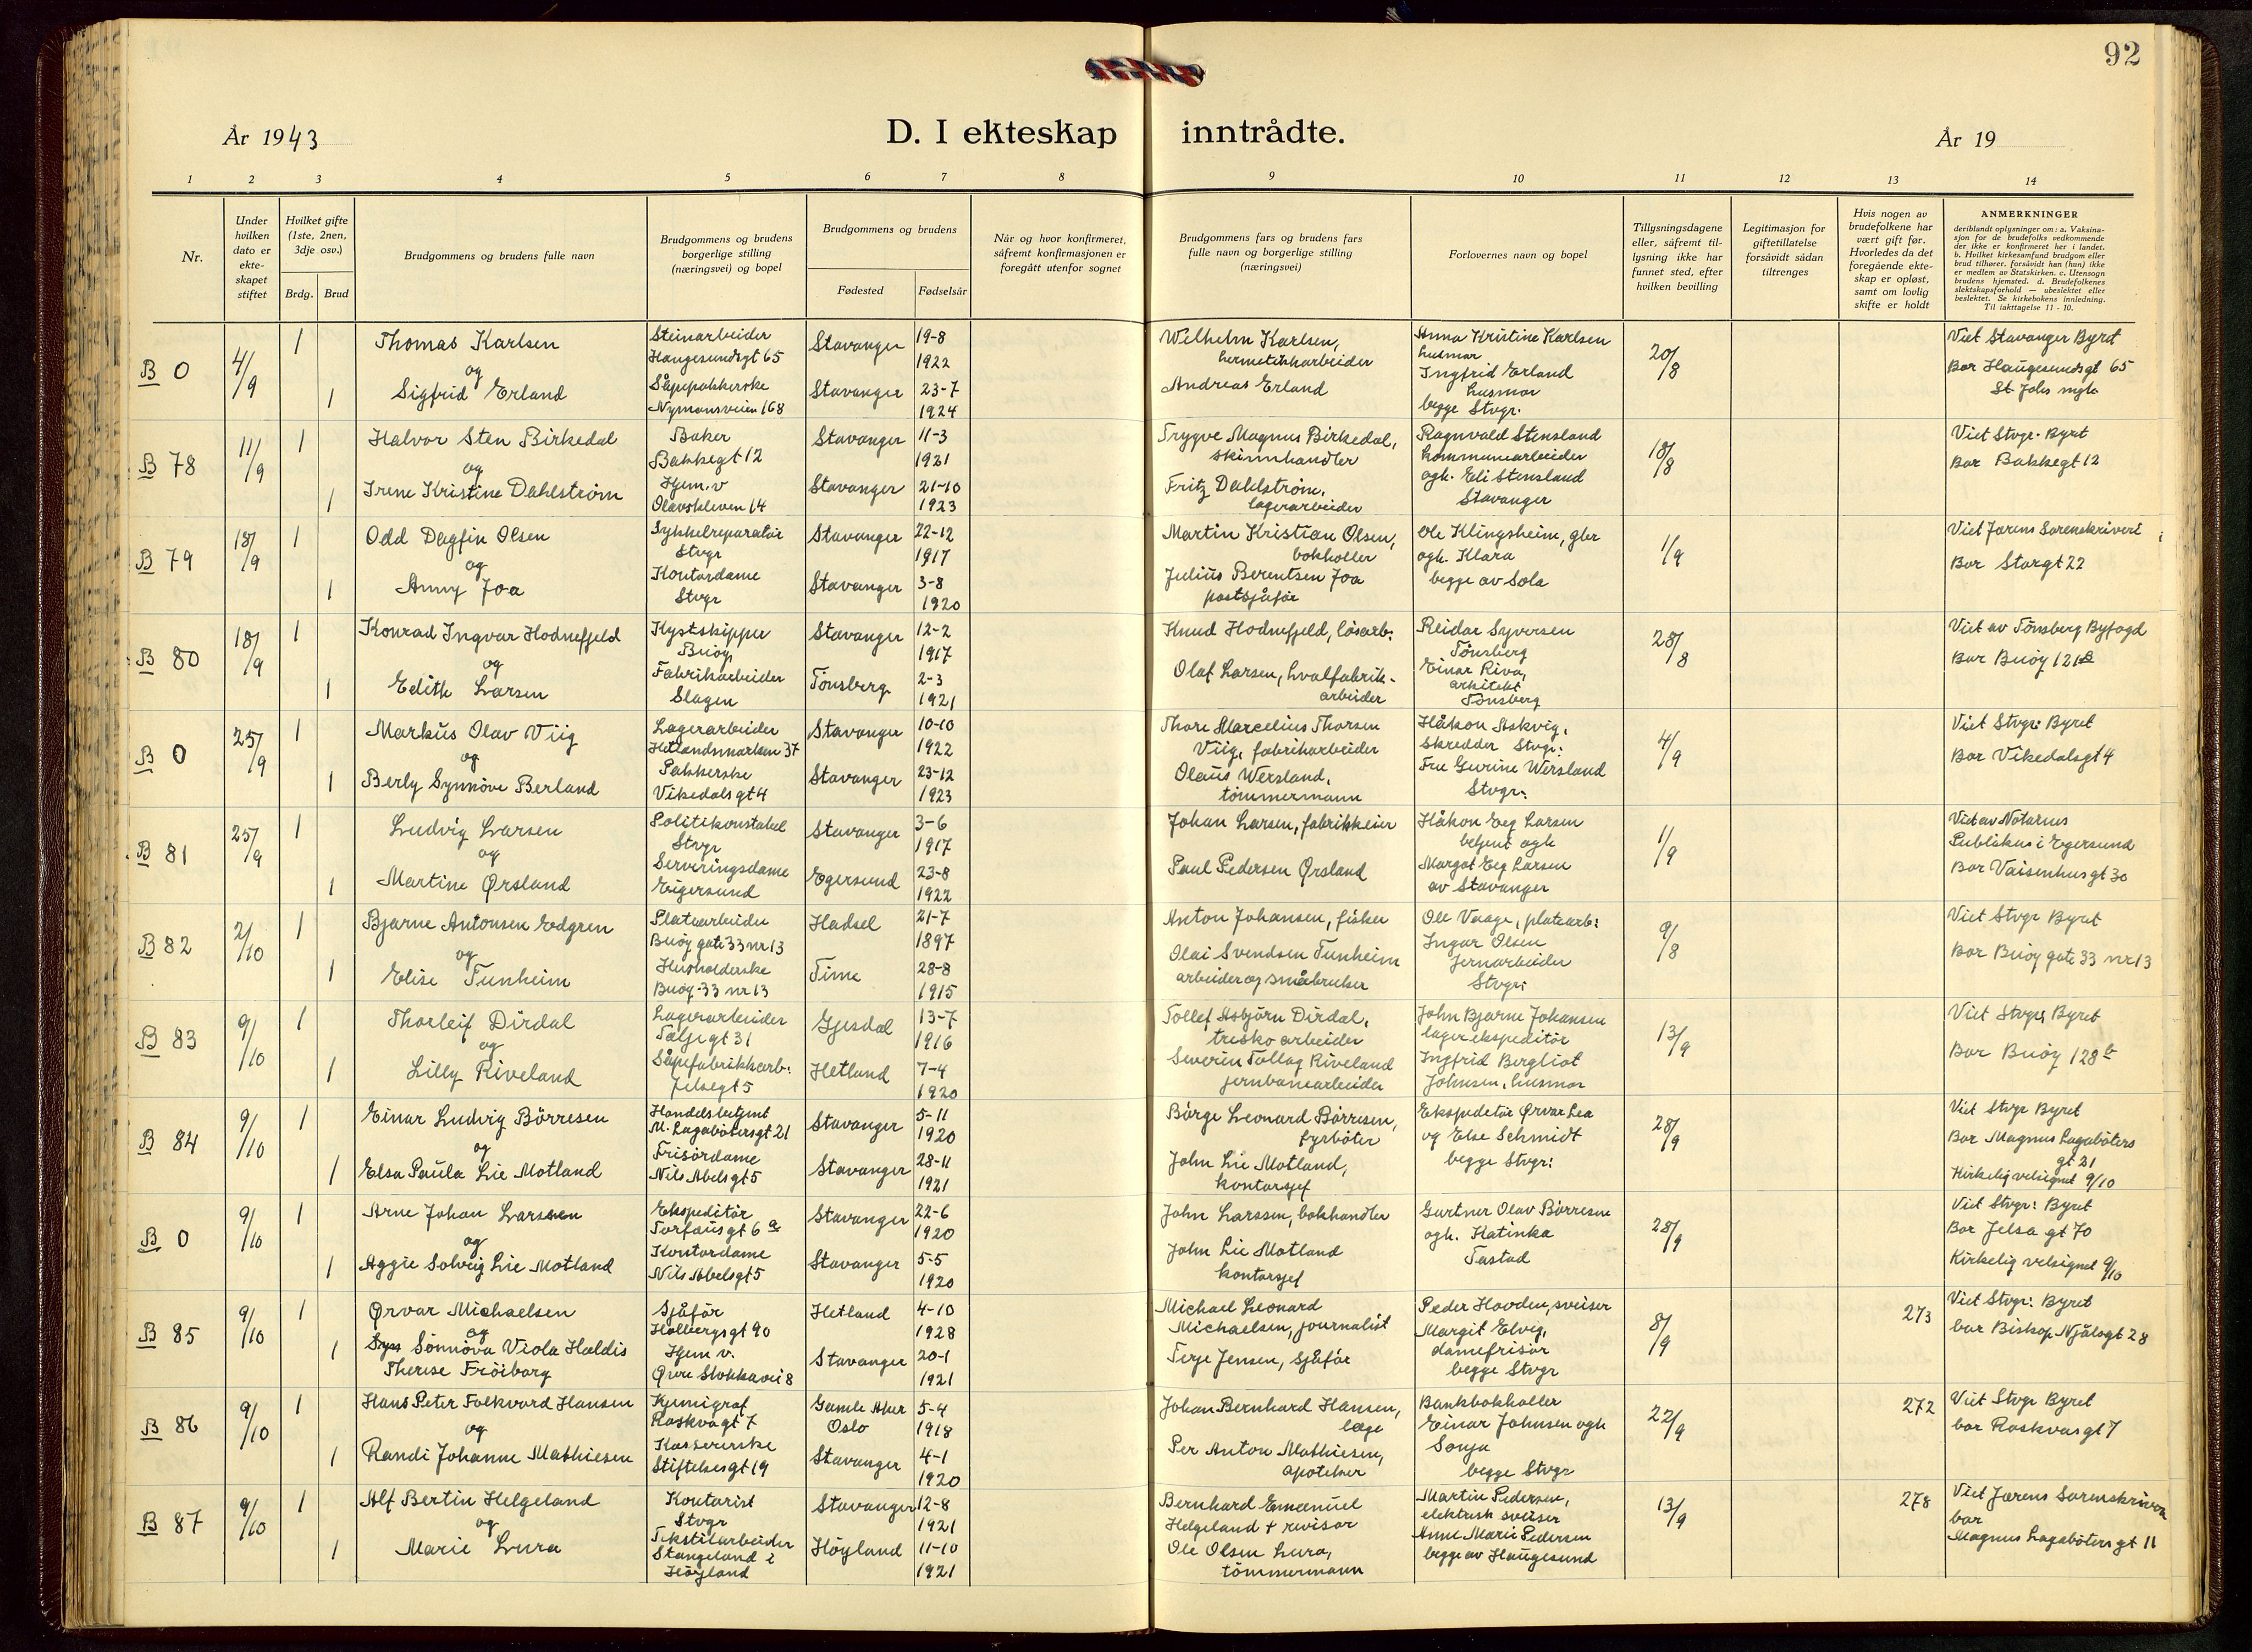 92
År 1943
D. I ekteskap inntrådte.
År 19
1 2 3 4 5 6 7 8 9 10 11 12 13 14
Nr.
Under hvilken dato er ekte-skapet stiftet
Hvilket gifte (1ste, 2nen, 3dje osv.)
Brdg. Brud
Brudgommens og brudens fulle navn
Brudgommens og brudens borgerlige stilling (næringsvei) og bopel
Brudgommens og brudens
Fødested Fødselsår
Når og hvor konfirmeret, såfremt konfirmasjonen er foregått utenfor sognet
Brudgommens fars og brudens fars fulle navn og borgerlige stilling (næringsvei)
Forlovernes navn og bopel
Tillysningsdagene eller, såfremt til-lysning ikke har funnet sted, efter hvilken bevilling
Legitimasjon for giftetillatelse forsåvidt sådan tiltrenges
Hvis nogen av brudefolkene har vært gift før. Hvorledes da det foregående ekte-skap er opløst, samt om lovlig skifte er holdt
ANMERKNINGER
deriblandt oplysninger om: a. Vaksina-
sjon for de brudefolks vedkommende
der ikke er konfirmeret her i landet.
b. Hvilket kirkesamfund brudgom eller
brud tilhører, forsåvidt han (hun) ikke
er medlem av Statskirken. c. Utensogn
brudens hjemsted. d. Brudefolkenes
slektskapsforhold — ubeslektet eller
beslektet. Se kirkebokens innledning.
Til iakttagelse 11 - 10.
B 0 4/9 1 Thomas Karlsen
og
1 Sigfrid Erland
Steinarbeider
Haugesundsgt 65
Såpepakkerske
Nymansveien 168
Stavanger 19-8 1922
Stavanger 23-7 1924
Wilhelm Karlsen,
hermetikkarbeider
Andreas Erland
Anna Kristine Karlsen
husmor
Ingfrid Erland
husmor
begge Stvgr.
20/8
Viet Stavanger Byret
Bor Haugesundsgt 65
St. Johs mgh
B 78 11/9 1 Halvor Sten Birkedal
og
1 Irene Kristine Dahlstrøm
Baker
Bakkegt 12
Hjem. v
Olavskleven 14
Stavanger 11-3 1921
Stavanger 21-10 1923
Trygve Magnus Birkedal,
skinnhandler
Fritz Dahlstrøm,
lagerarbeider
Ragnvald Stensland
kommunearbeider
ogh. Eli Stensland
Stavanger
18/8
Viet Stvgr. Byret
Bor Bakkegt 12
B 79 18/9 1 Odd Dagfin Olsen
og
1 Anny Joa
Sykkelreparatör
Stvgr
Kontordame
Stvgr
Stavanger 22-12 1917
Stavanger 3-8 1920
Martin Kristian Olsen,
bokholler
Julius Berentsen Joa
postsjåför
Ole Klingsheim, gbr
ogh. Klara
begge av Sola
1/9
Viet Jærens Sorenskriveri
Bor Storgt 22
B 80 18/9 1 Konrad Ingvar Hodnefjeld
og
1 Edith Larsen
Kystskipper
Buöy
Fabrikarbeider
Slagen
Stavanger 12-2 1917
Tönsberg 2-3 1921
Knud Hodnefjeld, lösarb.
Olaf Larsen, hvalfabrik-
arbeider
Reidar Syversen
Tönsberg
Einar Riva,
arkitekt
Tönsberg
28/8
Viet av Tönsberg Byfogd
Bor Buöy 121
B 0 25/9 1 Markus Olav Viig
og
1 Berly Synnöve Berland
Lagerarbeider
Hetlandsmarken 37
Pakkerske
Vikedalsgt 4
Stavanger 10-10 1922
Stavanger 23-12 1923
Thore Marcelius Thorsen
Viig, fabrikarbeider
Olaus Wersland,
tömmermann
Håkon Askvig,
skredder Stvgr.
Fru Gurine Wersland
Stvgr.
4/9
Viet Stvgr. Byret
Bor Vikedalsgt 4
B 81 25/9 1 Ludvig Larsen
og
1 Martine Ørsland
Politikonstabel
Stvgr
Serveringsdame
Eigersund
Stavanger 3-6 1917
Egersund 23-8 1922
Johan Larsen, fabrikkeier
Paul Pedersen Ørsland
Håkon Eeg Larsen
betjent ogh
Margot Eeg Larsen
av Stavanger
1/9
Viet av Notarius
Publikus i Egersund
Bor Vaisenhusgt 30
B 82 2/10 1 Bjarne Antonsen Edgren
og
1 Elise Tunheim
Platearbeider
Buöy gate 33 nr 13
Husholderske
Buöy 33 nr 13
Hadsel 21-7 1897
Time 28-8 1915
Anton Johansen, fisker
Olai Svendsen Tunheim
arbeider og småbruker
Ole Vaage, platearb:
Ingar Olsen
jernarbeider
Stvgr.
9/8
Viet Stvgr Byret
Bor Buöy gate 33 nr 13
B 83 9/10 1 Thorleif Dirdal
og
1 Lilly Riveland
Lagerarbeider
Taljegt 31
Såpefabrikkarb:
Jelsegt 5
Gjesdal 13-7 1916
Hetland 7-4 1920
Tollef Asbjörn Dirdal,
tresko arbeider
Severin Tollag Riveland
jernbanearbeider
John Bjarne Johansen
lagerekspeditör
Ingfrid Bergliot
Johnsen, husmor
13/9
Viet Stvgr Byret
Bor Buöy 128
B 84 9/10 1 Einar Ludvig Börresen
og
1 Elsa Paula Lie Motland
Handelsbetjent
M. Lagabötersgt 21
Frisördame
Nils Abelsgt 5
Stavanger 5-11 1920
Stavanger 28-11 1921
Börge Leonard Börresen,
fyrböter
John Lie Motland,
kontorsjef
Ekspeditör Ørvar Lea
og Else Schmidt
begge Stvgr.
28/9
Viet Stvgr Byret
Bor Magnus Lagaböters
gt 21
Kirkelig velsignet 9/10
B 0 9/10 1 Arne Johan Larssen
og
1 Aggie Solveig Lie Motland
Ekspeditör
Torfæusgt 6 a
Kontordame
Nils Abelsgt 5
Stavanger 22-6 1920
Stavanger 5-5 1920
John Larssen, bokhandler
John Lie Motland
kontorsjef
Gartner Olav Börresen
ogh. Katinka
Tastad
28/9
Viet Stvgr: Byret
Bor Jelsa gt 70
Kirkelig velsignet 9/10
B 85 9/10 1 Ørvar Michaelsen
og
1 Sönnöva Viola Haldis
Therese Fröiborg
Sjåför
Holbergsgt 90
Hjem v.
Øvre Stokkavei 8
Hetland 4-10 1928
Stavanger 20-1 1921
Michael Leonard
Michaelsen, journalist
Terje Jensen, sjåför
Peder Hovden, sveiser
Margit Elvig,
damefrisör
begge Stvgr
8/9
273
Viet Stvgr: Byret
bor Biskop Njålsgt 28
B 86 9/10 1 Hans Peter Folkvord Hansen
og
1 Randi Johanne Mathiesen
Kjemigraf
Roskvagt 7
Kassererske
Stiftelsesgt 19
Gamle Aker
Oslo 5-4 1918
Stavanger 4-1 1920
Johan Bernhard Hansen,
læge
Per Anton Mathiesen,
apoteker
Bankbokholler
Einar Johnsen ogh
Sonja
begge Stvgr
22/9
272
Viet Stvgr Byret
bor Roskvasgt 7
B 87 9/10 1 Alf Bertin Helgeland
og
1 Marie Lura
Kontorist
Stvgr
Tekstilarbeider
Stangeland i
Höyland
Stavanger 12-8 1921
Höyland 11-10 1921
Bernhard Emanuel
Helgeland + revisor
Ole Olsen Lura,
tömmermann
Martin Pedersen,
elektrisk sveiser
Anne Marie Pedersen
begge av Haugesund
13/9
278
Viet Jærens Sorenskriver
bor
Magnus Lagaböters gt 11